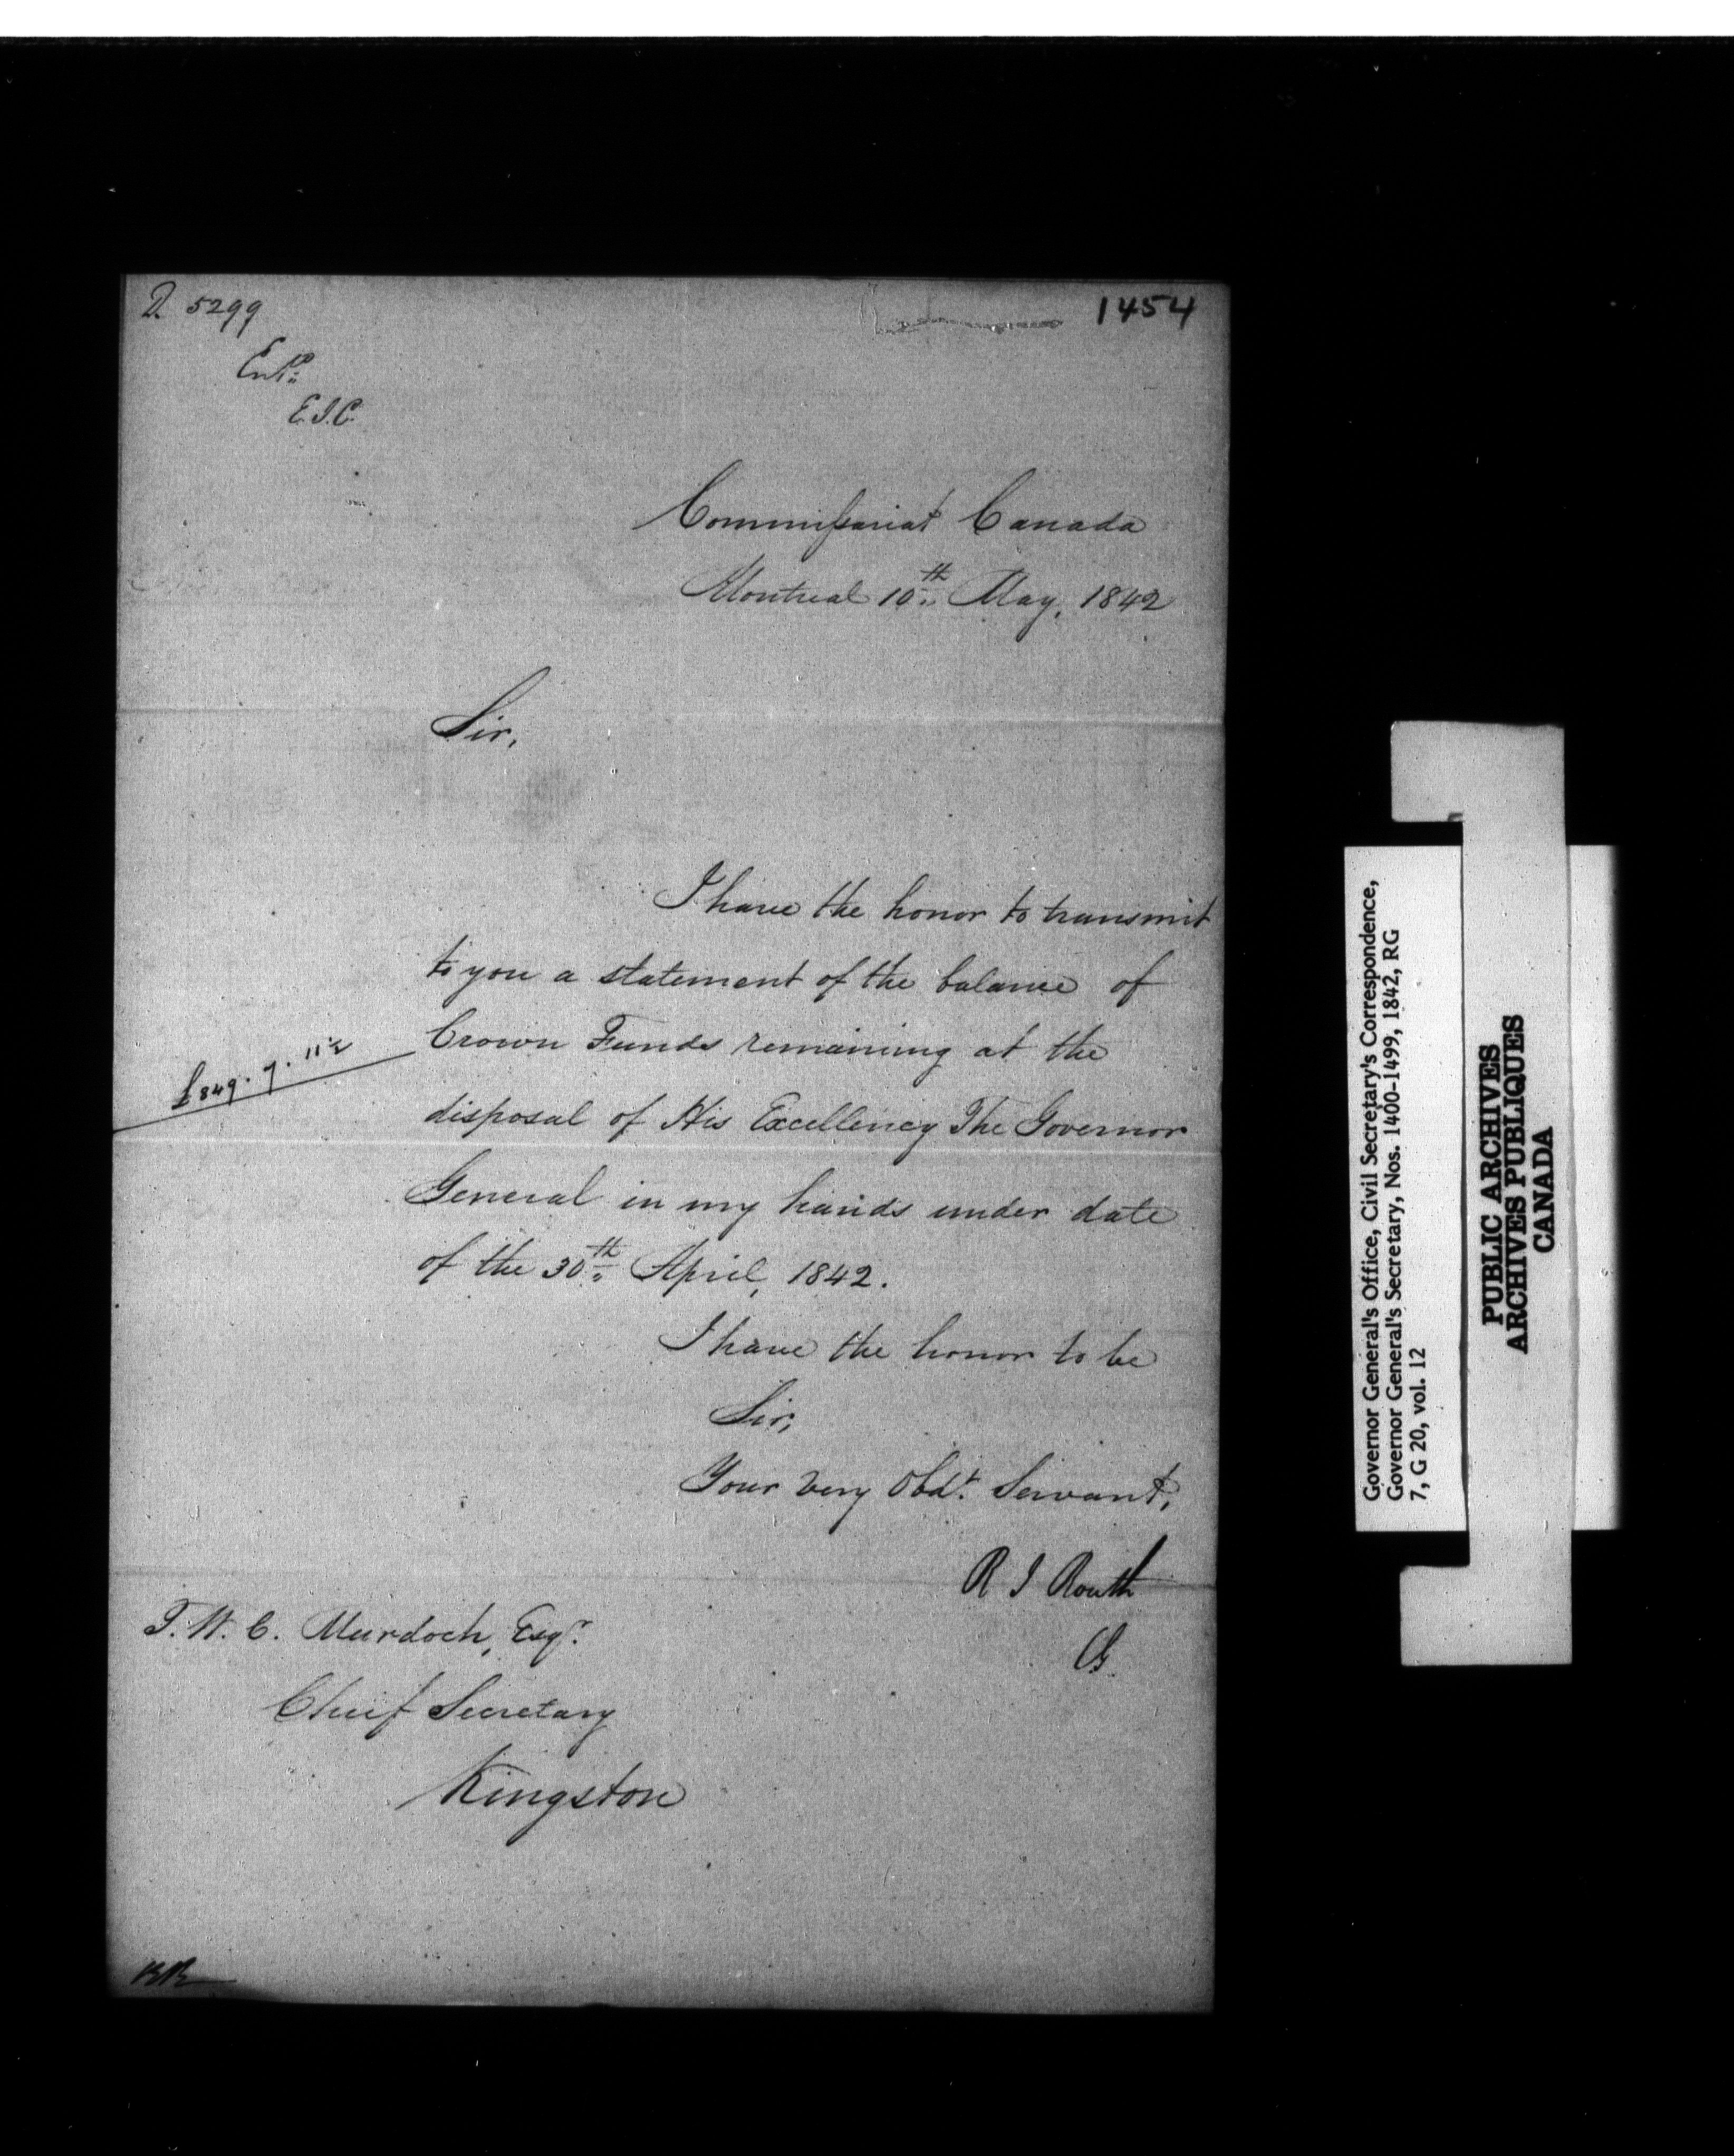 D. 5299
1454
Entd.
E.I.C.
Commissariat Canada
Montreal 10th May, 1842
Sir,
I have the honor to transmit
to you a statement of the balance of
Crown Funds remaining at the
£849. 7. 11½
disposal of His Excellency The Governor
General in my hands under date
of the 30th April, 1842.
I have the honor to be
Sir,
Your very Obdt. Servant,
R I Routh
CG
T. W. C. Murdoch, Esqr.
Chief Secretary
Kingston
Governor General's Office, Civil Secretary's Correspondence,
Governor General's Secretary, Nos. 1400-1499, 1842, RG
7, G 20, vol. 12
PUBLIC ARCHIVES
ARCHIVES PUBLIQUES
CANADA